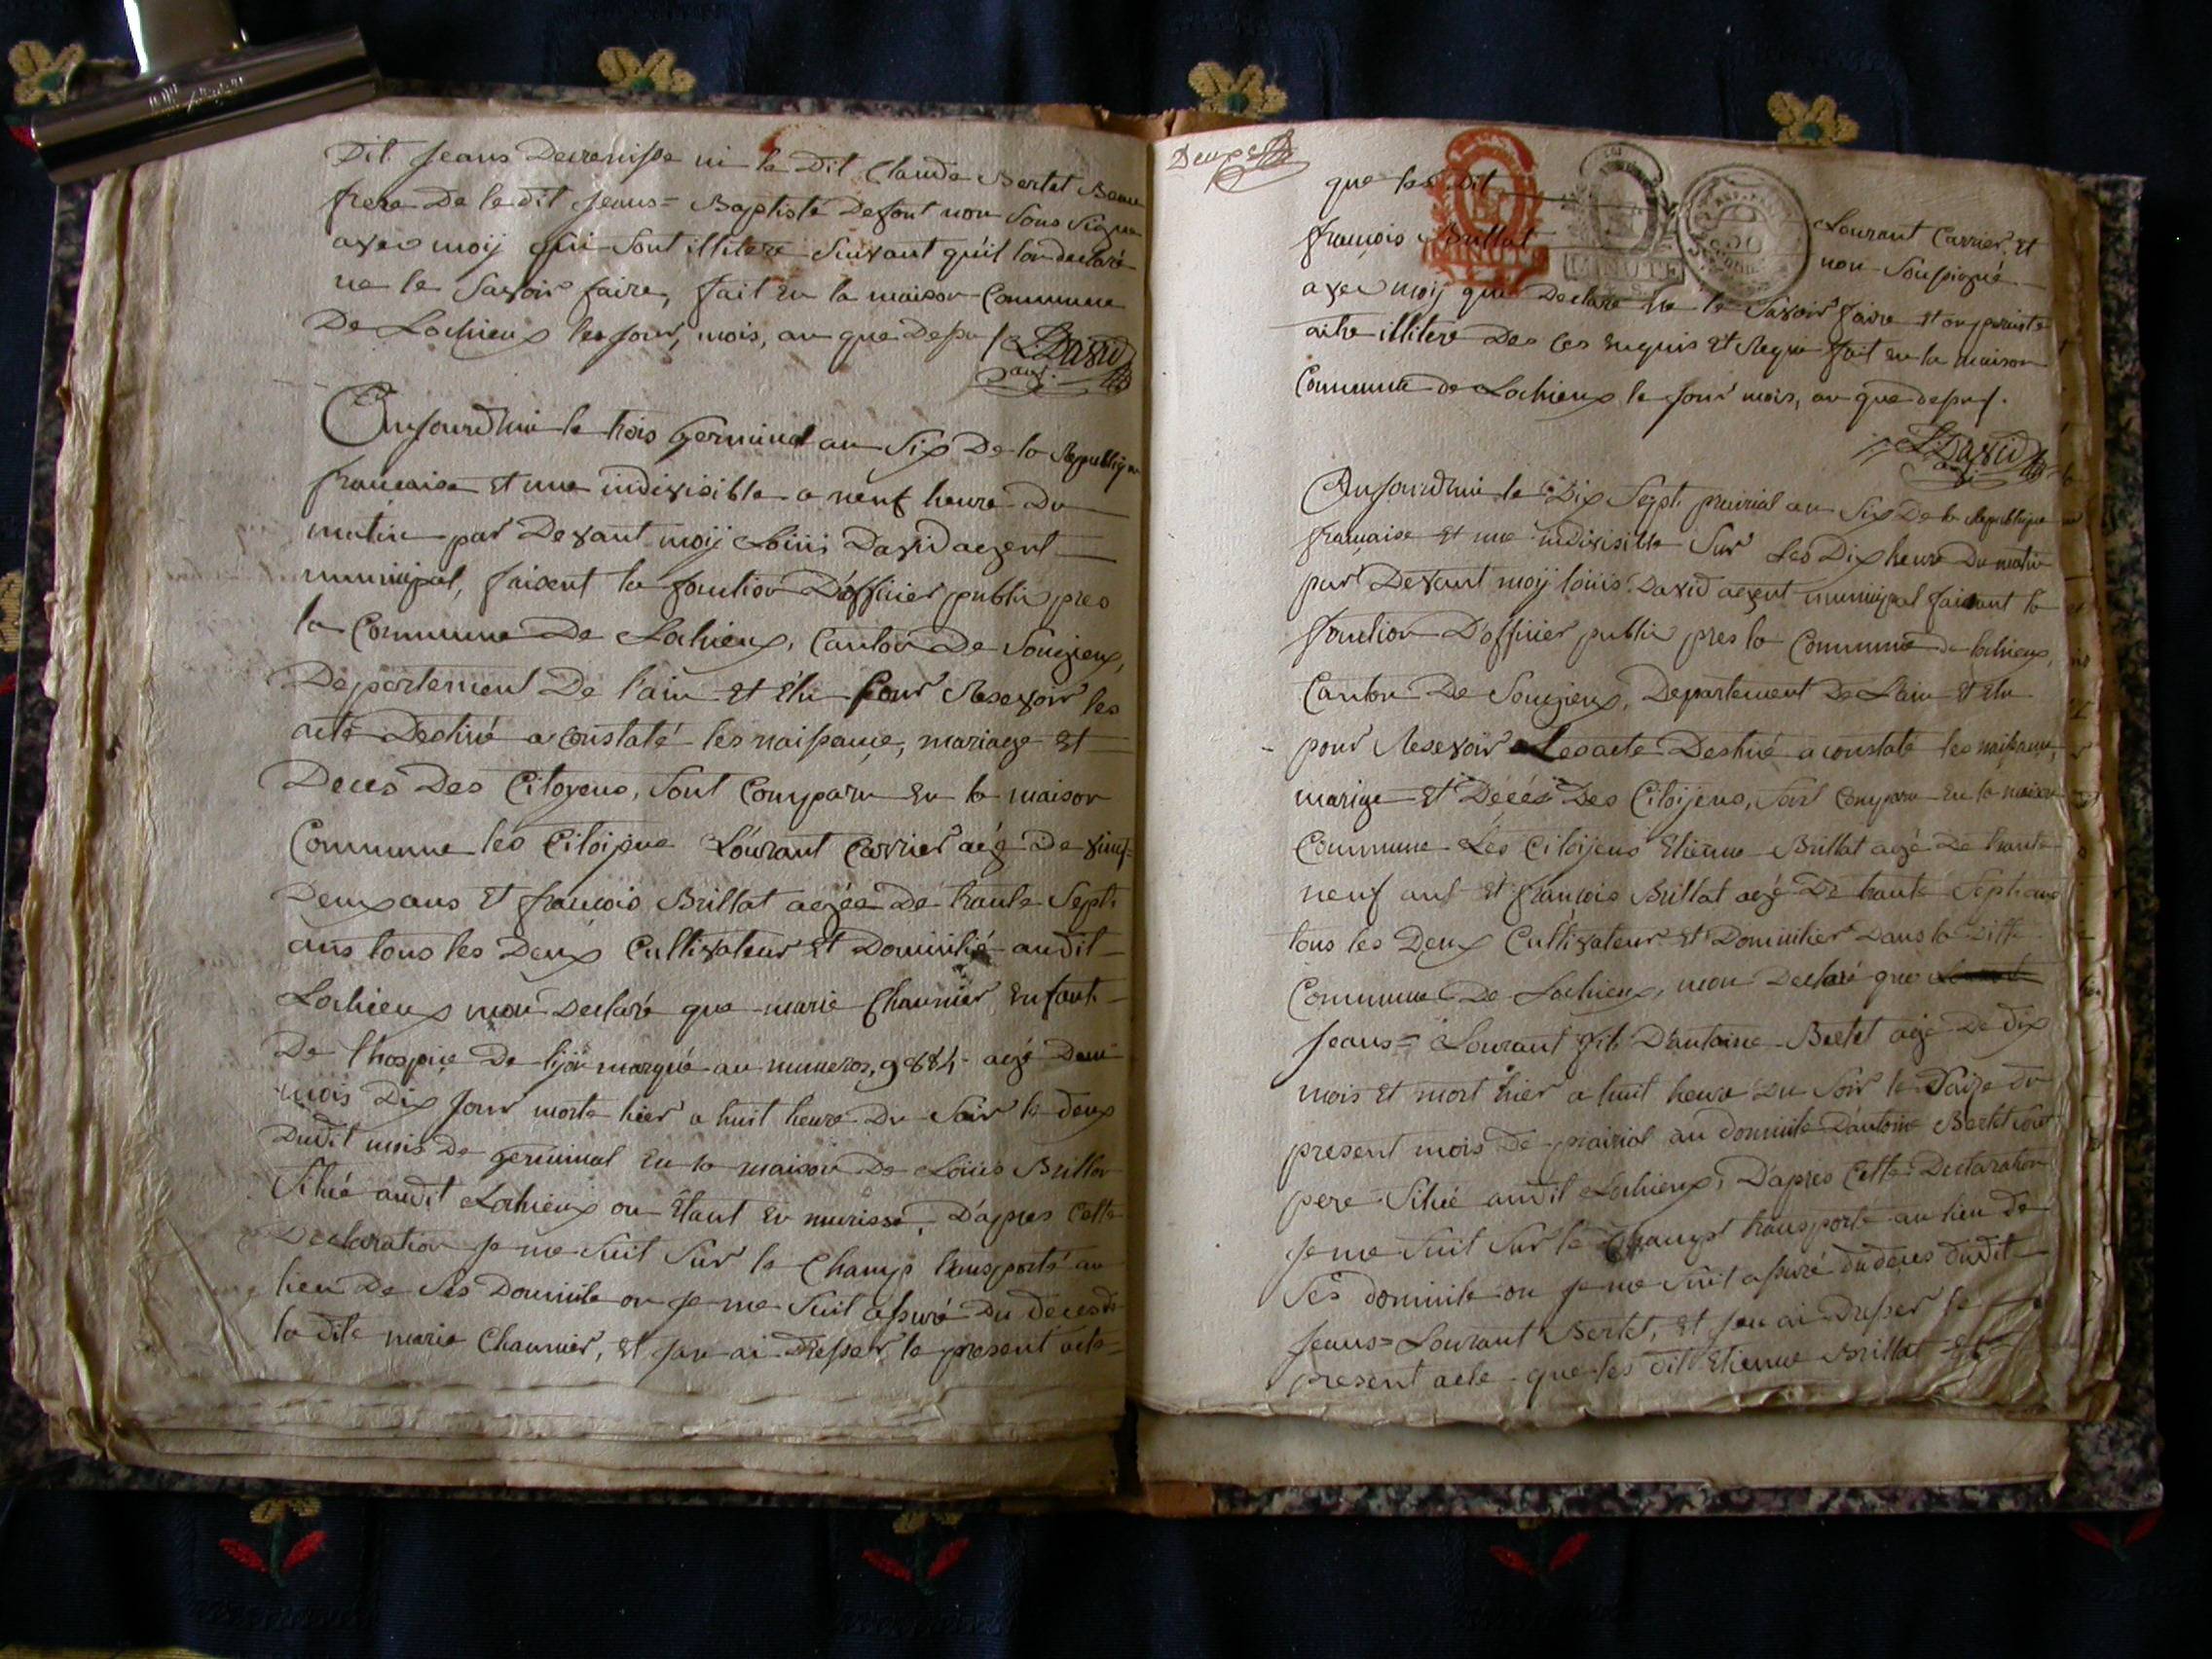 Dit Jeans Decrenisse ni le Dit Claude Bertet Beau
frere De le dit Jeans= Baptiste Defont non Sous Signe
avec moij qui Sont illitere Suivant qu'il lon declaré
ne le Savoir faire, fait en la maison Commune
De Lochieux les jour, mois, an que Desu
L. David
agt.
Aujourdhui le trois Germinal an Six De la Republique
francaise Et une indivisible a neuf heure Du
matin par Devant moij Loüis David agent
municipal, faisent la fonction D'officier public pres
la Commune De Lochieux, Canton De Songieux,
Departement De l'ain Et Elu pour Resevoir les
acte Destiné a Constaté les naissance, mariage Et
Deces Des Citoyens, Sont Comparu en la maison
Commune les Citoijens Lourant Carrier agé De vingt=
Deux ans Et francois Brillat agée De trante Sept
ans tous les Deux Cultivateur Et Domicilié audit
Lochieux mon Declaré que marie Chaunier Enfant
De l'hospice De lijon marqué au numeros, 9884 agé Deux
mois Dix jour morte hier a huit heure Du Soir le deux
Dudit mois De germinal en la maison De Loüis Brillat
Situé audit Lochieux ou Etant en nurisse, D'apres Cette
Declaration je me Suit Sur le Champ transporté au
lieu De Ses Domicile ou je me Suit assuré Du deces de
la dite marie Chaunier, Et j'en ai Dresser le present acte
Deux
que les Dit Lourant Carrier Et
francois Brillat non Soussigné
MINUTE
MINUTE
50
avec moij que Declare ne le Savoir faire Et
aitre illitere Des Ces Enquis Et Requi fait en la maison
Commune de Lochieux le jour mois, an que desus.
L. David
agt.
Aujourdhui le Dix Sept prairial an Six De la Republique
francaise Et une indivisible Sur Les Dix heure Du matin
par Devant moij loüis David agent municipal faisant la
fonction D'officier public pres la Commune de lochieux,
Canton De Songieux, Departement De L'ain Et Elu
pour Resevoir Les acte Destiné a constaté les naissance,
mariage Et Décés Des Citoijens, Sont Comparu en la maison
Commune Les Citoijens Etienne Brillat agé De trante
neuf ans Et francois Brillat agé De trante Sept ans
tous les Deux Cultivateur Et Domicilier Dans la Ditte
Commune De Lochieux, mon Declaré que
Jeans= Lourant fils D'antoine Bertet agé De dix
mois Et mort hier a huit heure Du Soir le Saize du
present mois De prairial au domicile D'antoine Bertet Son
pere Situé audit Lochieux, D'apres Cette Declaration
Je me Suit Sur le Champt transporté au lieu De
Ses domicile ou je me Suit assuré du deces dudit
Jeans= Lourant Bertet, Et j'en ai Dresser le
present acte que les dit Etienne Brillat Et